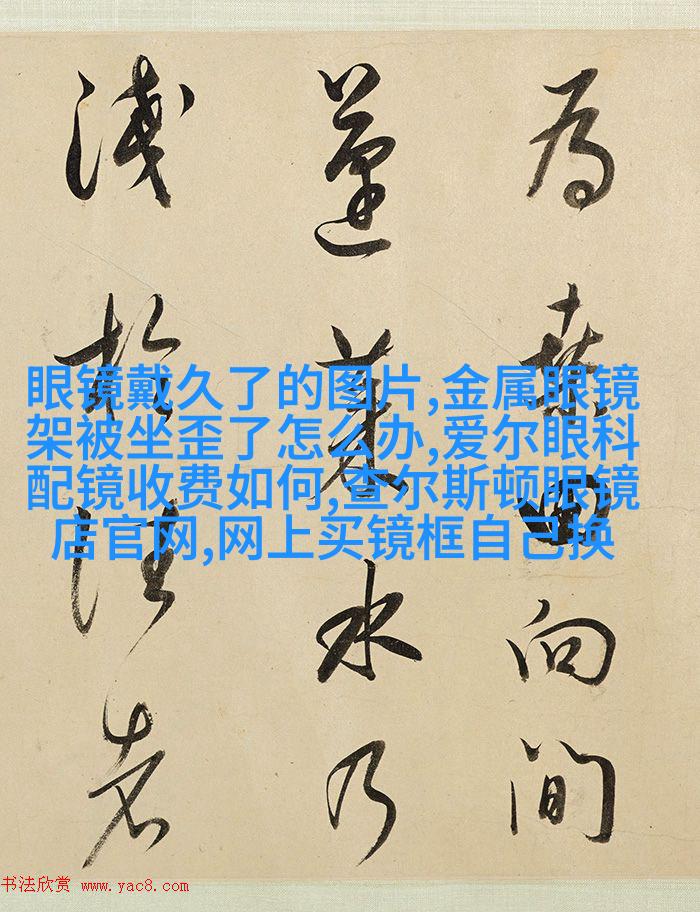 為桑田向間
蓬萊水乃
淺於往者
眼镜戴久了的图片,金属眼镜
架被坐歪了怎么办,爱尔眼科
配镜收费如何,查尔斯顿眼镜
店官网,网上买镜框自己换
书法欣赏 www.yac8.com